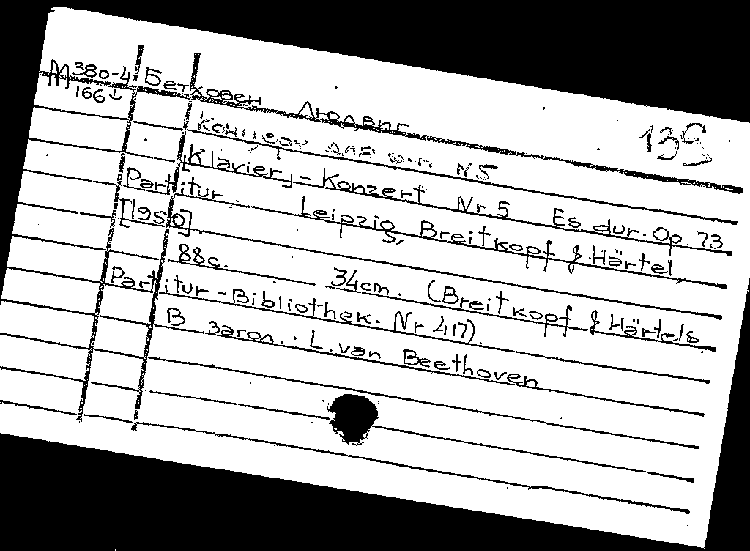 М 380-4
166↓
Бетховен Людвиг
139
Концерт для ф-п N5
[Klavier]-Konzert Nr. 5 Es dur. Op 73
Partitur Leipzig, Breitkopf & Härtel,
[1950].
88с. 34cm. (Breitkopf & Härtels
Partitur-Bibliothek. Nr 417)
В загол.: L. van Beethoven